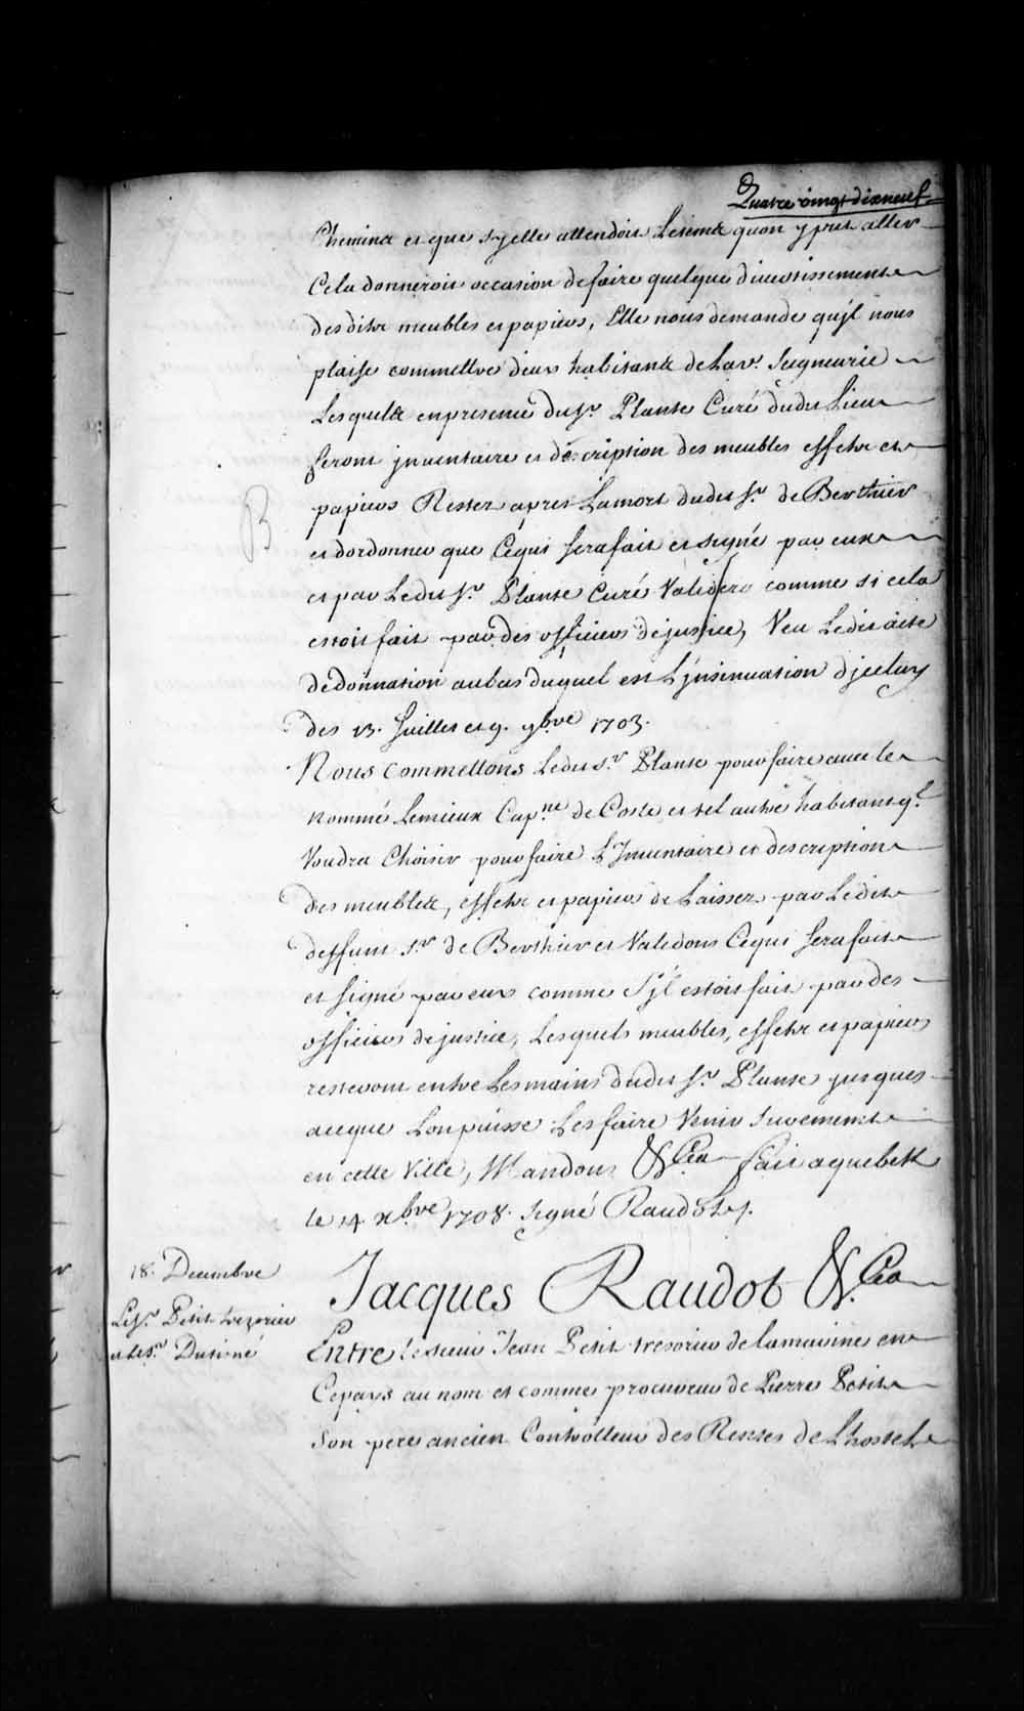 Quatre vingt dixneuf
Chemina et que sy elle attendoit Letemz quon y put aller
Cela donneroit occasion defaire quelques divertissements
desdits meubles et papiers, Elle nous demande qujl nous
plaise commettre deux habitants de Lad. Seigneurie
Lesquels en presence du Sr. Plante Curé dudit Lieu
feront jnventaire et description des meubles effets et
papiers Restez apres Lamort dudit Sr. de Berthier
et dordonner que Cequi sera fait et signé par eux
et par Ledit Sr. Plante Curé Validera comme si cela
estoit fait par des officiers de justice, Veu Ledit acte
de donnation aubas duquel est L'jnsinuation d'jceluy
des 13. Juillet et 9. 9bre 1703.
Nous commettons Ledit Sr. Plante pour faire avec le
nommé Lemieux Capne. de Coste et tel autre habitant ql.
Voudra Choisir pour faire L'Inventaire et description
des meubles, effets et papiers de Laissez par Ledit
deffunt Sr. de Berthier et Validons Cequi sera fait
et signé par eux comme s'jl estoit fait par des
officiers de justice, Lesquels meubles, effets et papiers
resteront entre Les mains dudit Sr. Plante jusques
aceque Lon puisse Les faire Venir Surement
en cette Ville, Mandons &Ca fait a quebek
le 14 xbre 1708. Signé Raudot ./.
18. Decembre
Jacques Raudot &.Ca
Le Sr. Petit trezorier
et Le Sr. Dusiné
Entre le sieur Jean Petit tresorier de lamarine en
Cepays au nom et comme procureur de Pierre Petit
Son pere ancien Controlleur des Rentes de L'hostel